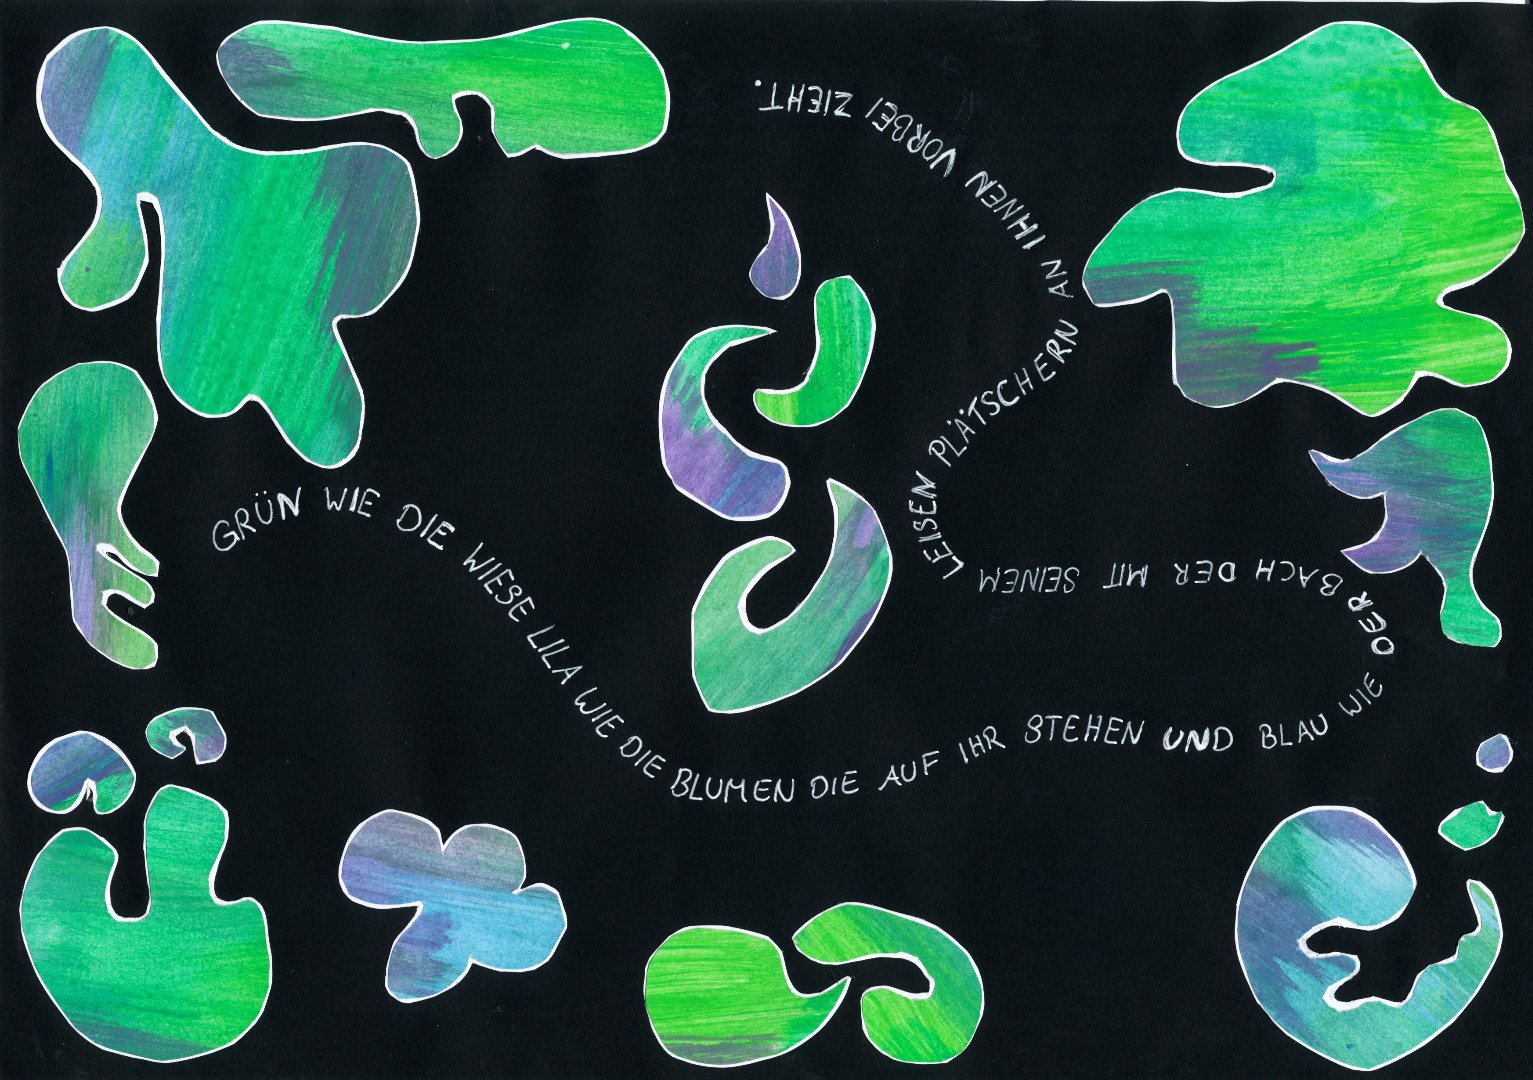 GRÜN WIE DIE WIESE LILA WIE DIE BLUMEN DIE AUF IHR STEHEN UND BLAU WIE DER BACH DER MIT SEINEM LEISEN PLÄTSCHERN AN IHNEN VORBEI ZIEHT.